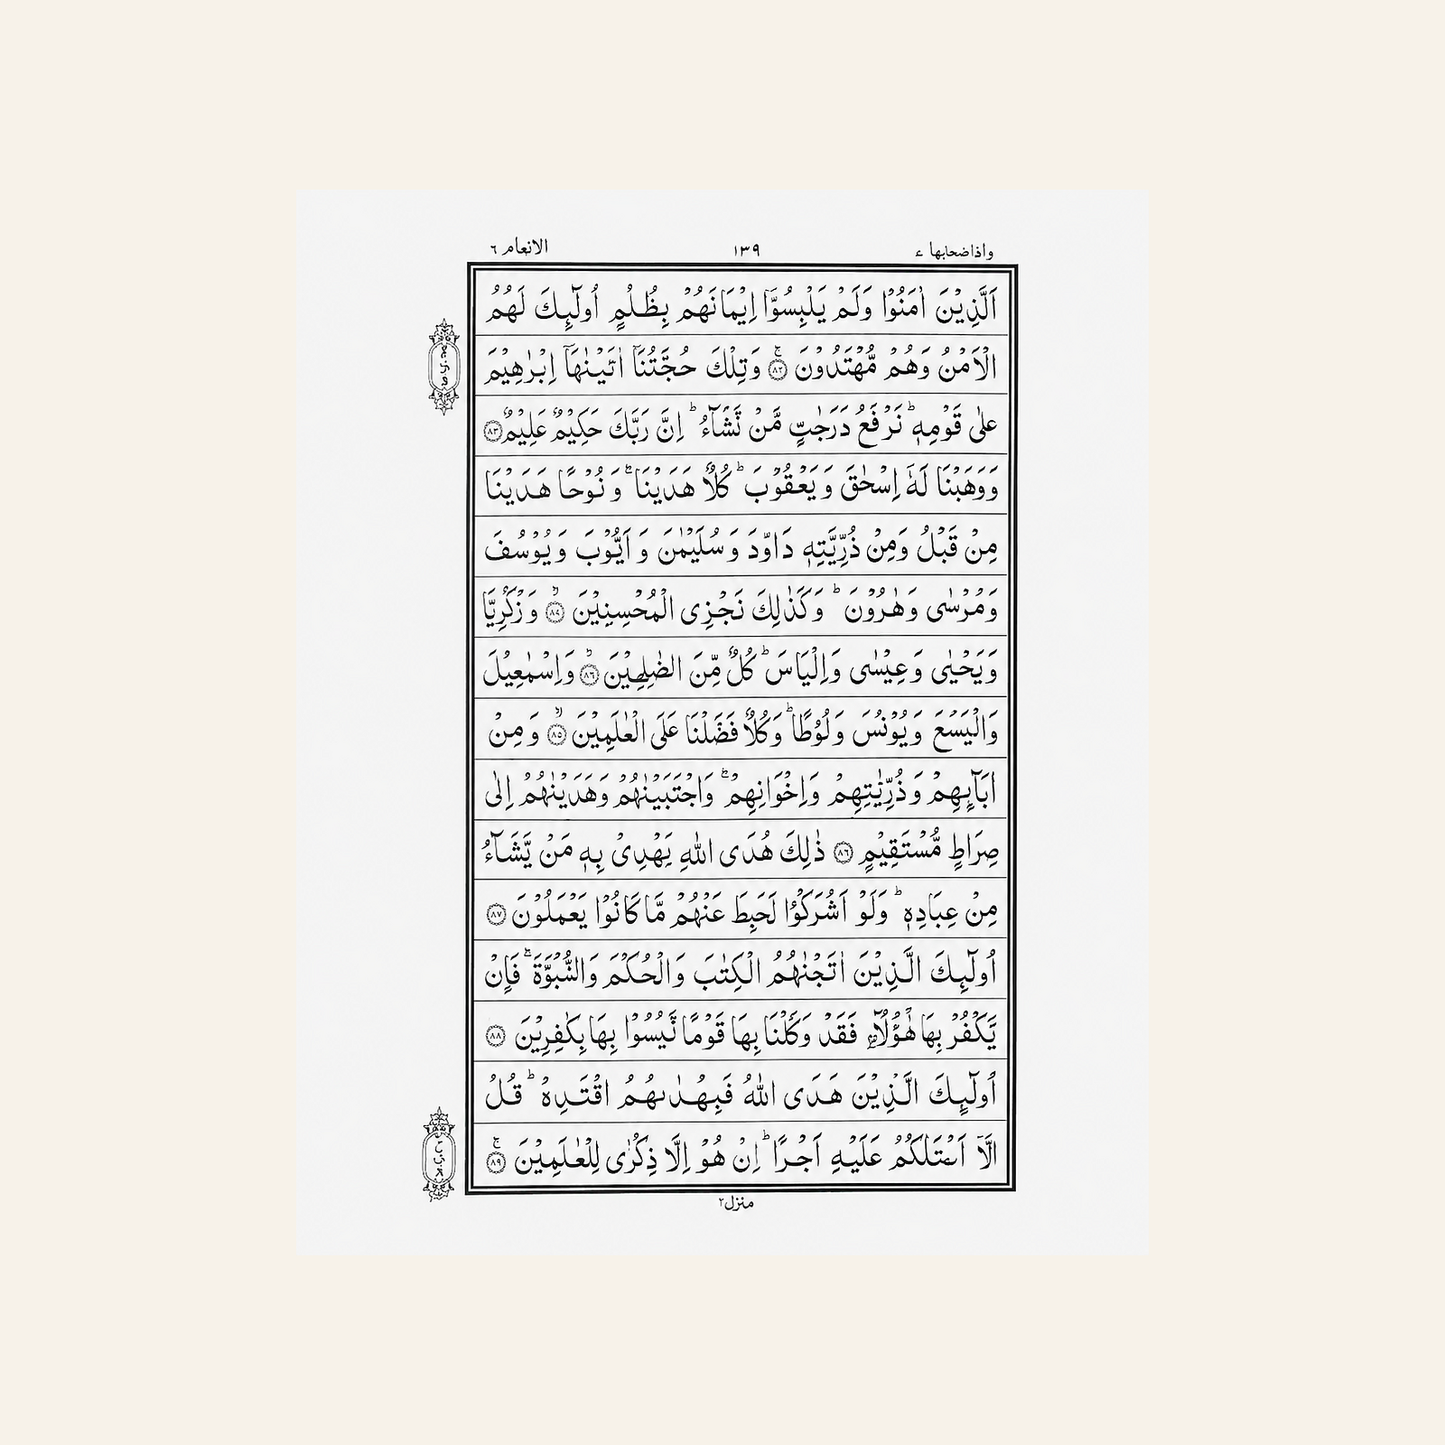 واذاضحابها ء ١٣٩ الانعام ٦
اَلَّذِيْنَ اٰمَنُوْا وَلَمْ يَلْبِسُوْٓا اِيْمَانَهُمْ بِظُلْمٍ اُولٰٓئِكَ لَهُمُ
الْاَمْنُ وَهُمْ مُّهْتَدُوْنَ ۝٨٢ وَتِلْكَ حُجَّتُنَآ اٰتَيْنٰهَآ اِبْرٰهِيْمَ
عَلٰى قَوْمِهٖ ؕ نَرْفَعُ دَرَجٰتٍ مَّنْ نَّشَآءُ ؕ اِنَّ رَبَّكَ حَكِيْمٌ عَلِيْمٌ ۝٨٣
وَوَهَبْنَا لَهٗ اِسْحٰقَ وَيَعْقُوْبَ ؕ كُلًّا هَدَيْنَا ۚ وَنُوْحًا هَدَيْنَا
مِنْ قَبْلُ وَمِنْ ذُرِّيَّتِهٖ دَاوٗدَ وَسُلَيْمٰنَ وَاَيُّوْبَ وَيُوْسُفَ
وَمُرْسٰى وَهٰرُوْنَ ؕ وَكَذٰلِكَ نَجْزِى الْمُحْسِنِيْنَ ۝٨٤ وَزَكَرِيَّا
وَيَحْيٰى وَعِيْسٰى وَاِلْيَاسَ ؕ كُلٌّ مِّنَ الضٰلِهِيْنَ ۝٨٦ وَاِسْمٰعِيْلَ
وَالْيَسَعَ وَيُوْنُسَ وَلُوْطًا ؕ وَكُلًّا فَضَّلْنَا عَلَى الْعٰلَمِيْنَ ۝٨٥ وَمِنْ
اٰبَآئِهِمْ وَذُرِّيّٰتِهِمْ وَاِخْوَانِهِمْ ۚ وَاجْتَبَيْنٰهُمْ وَهَدَيْنٰهُمْ اِلٰى
صِرَاطٍ مُّسْتَقِيْمٍ ۝٨٦ ذٰلِكَ هُدَى اللّٰهِ يَهْدِىْ بِهٖ مَنْ يَّشَآءُ
مِنْ عِبَادِهٖ ؕ وَلَوْ اَشْرَكُوْا لَحَبِطَ عَنْهُمْ مَّا كَانُوْا يَعْمَلُوْنَ ۝٨٧
اُولٰٓئِكَ الَّذِيْنَ اٰتَجْنٰهُمُ الْكِتٰبَ وَالْحُكْمَ وَالنُّبُوَّةَ ۚ فَاِنْ
يَّكْفُرْ بِهَا هٰٓؤُلَآءِ فَقَدْ وَكَّلْنَا بِهَا قَوْمًا نَّيْسُوْا بِهَا بِكٰفِرِيْنَ ۝٨٨
اُولٰٓئِكَ الَّذِيْنَ هَدَى اللّٰهُ فَبِهُدٰىهُمُ اقْتَدِهْ ؕ قُلْ
الَّآ اَسْتَلُكُمْ عَلَيْهِ اَجْرًا ؕ اِنْ هُوَ اِلَّا ذِكْرٰى لِلْعٰلَمِيْنَ ۝٨٩
منزل٢